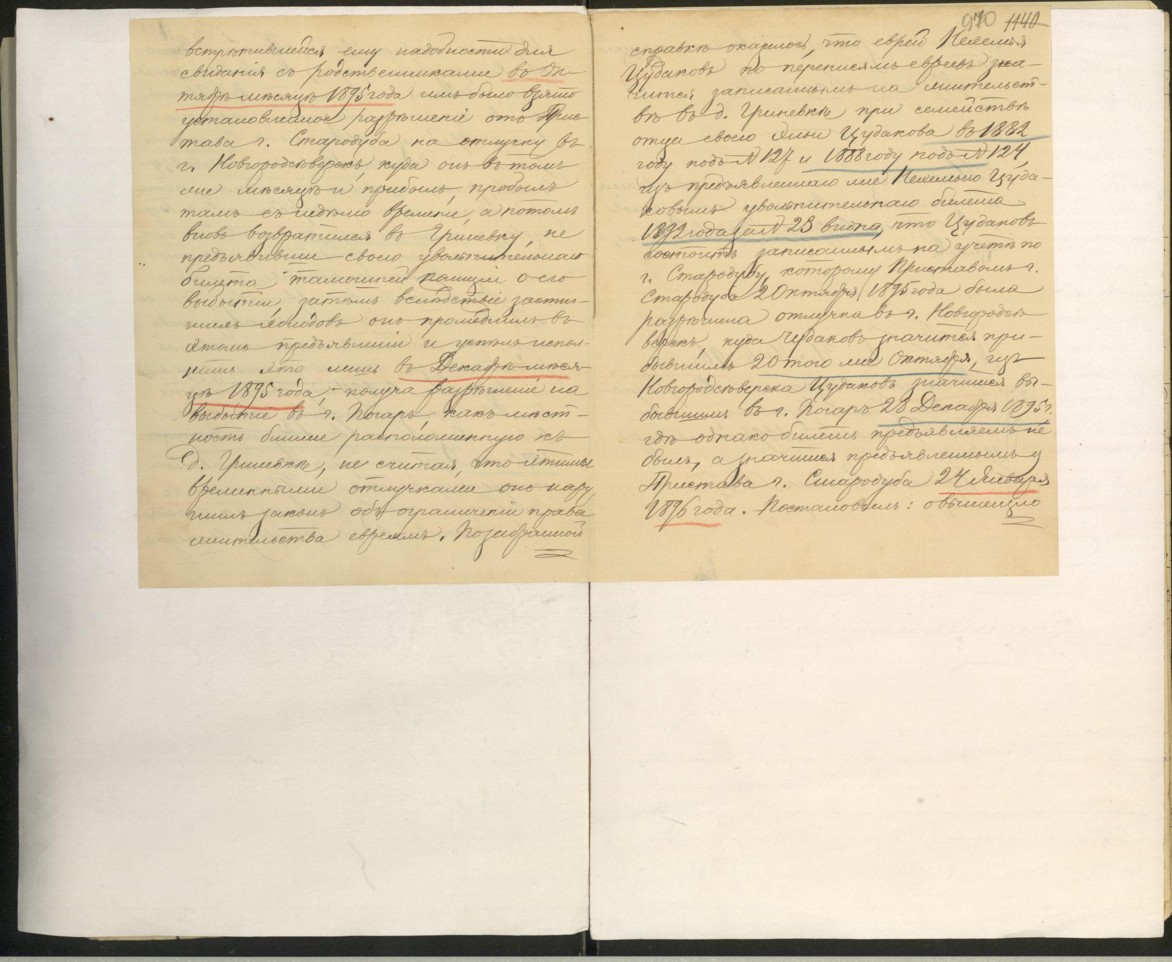 встрѣтившейся ему надобности для
свиданія съ родственниками въ Ок-
тябрѣ мѣсяцѣ 1895 года имъ было взято
установленое разрѣшеніе отъ При-
става г. Стародуба на отлучку въ
г. Новгородсѣверскъ, куда онъ въ томъ
же мѣсяцѣ и прибылъ, пробылъ
тамъ съ недѣлю времени, а потомъ
вновь возвратился въ Гриневку, не
предъявивши своего увольнительнаго
билета тамошней полиціи о его
выбытіи, затѣмъ вслѣдствіе
холодовъ онъ промедлилъ въ
этомъ предъявленіи и успѣлъ испол-
нить это лишь въ Декабрѣ мѣся-
цѣ 1895 года, получа разрѣшеніе на
выбытіе въ г. Погаръ, какъ мѣст-
ность ближе расположенную къ
д. Гриневкѣ, не считая, что этими
временными отлучками онъ нару
шилъ законъ объ ограниченіи права
жительства евреямъ. По собранной
970 1140
справкѣ оказалось, что еврей
Цудаковъ по переписямъ евреевъ зна-
чится записаннымъ на жительст-
вѣ въ д. Гриневкѣ при семействѣ
отца своего Цудакова въ 1882
году подъ № 127 и 1888 году подъ № 124,
изъ предъявленнаго мнѣ Цуда-
ковымъ увольнительнаго билета
1892 года за № 23 видно, что Цудаковъ
состоитъ записаннымъ на учетъ по
г. Стародубу, которому Приставомъ г.
Стародуба 2 Октября 1895 года была
разрѣшена отлучка въ г. Новгородсѣ
верскъ, куда Цудаковъ значится при-
бывшимъ 20 того же Октября, изъ
Новгородсѣверска Цудаковъ значится вы-
бывшимъ въ г. Погаръ 28 Декабря 1895 г.
гдѣ однако билетъ предъявляемъ не
былъ, а значится предъявленнымъ у
Пристава г. Стародуба 24 Января
1896 года. Постановилъ: о вышеизло